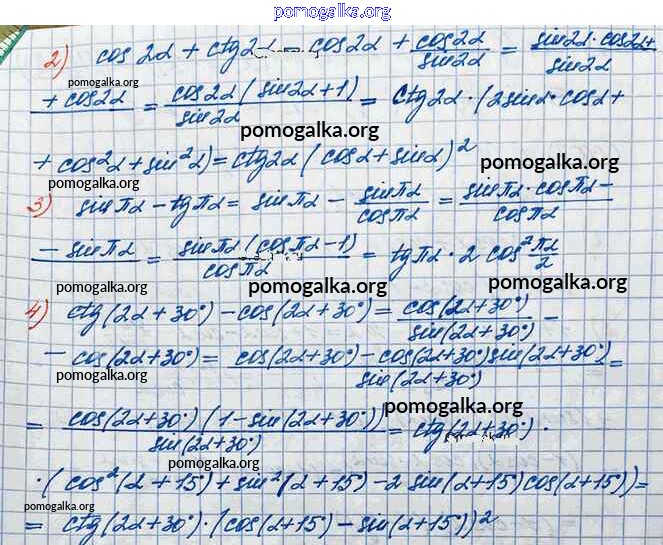 pomogalka.org
2) cos2α + ctg2α = cos2α + cos2α/sin2α = sin2α·cos2α+/sin2α
pomogalka.org
+ cos2α/ = cos2α(sin2α+1)/sin2α = ctg2α·(2sinα·cosα+
pomogalka.org
+ cos²α + sin²α) = ctg2α(cosα+sinα)²
pomogalka.org
pomogalka.org
3) sinπα − tgπα = sinπα − sinπα/cosπα = sinπα·cosπα−/cosπα
− sinπα/ = sinπα(cosπα−1)/cosπα = tgπα·2cos²πα/2
pomogalka.org pomogalka.org pomogalka.org
4) ctg(2α+30°) − cos(2α+30°) = cos(2α+30°)/sin(2α+30°) −
− cos(2α+30°) = cos(2α+30°) − cos(2α+30°)sin(2α+30°)/sin(2α+30°) =
pomogalka.org
pomogalka.org
= cos(2α+30°)(1−sin(2α+30°))/sin(2α+30°) = ctg(2α+30°)·
pomogalka.org
·(cos²(α+15°)+sin²(α+15°)−2sin(α+15°)cos(α+15°))=
pomogalka.org
= ctg(2α+30°)·(cos(α+15°)−sin(α+15°))²
pomogalka.org